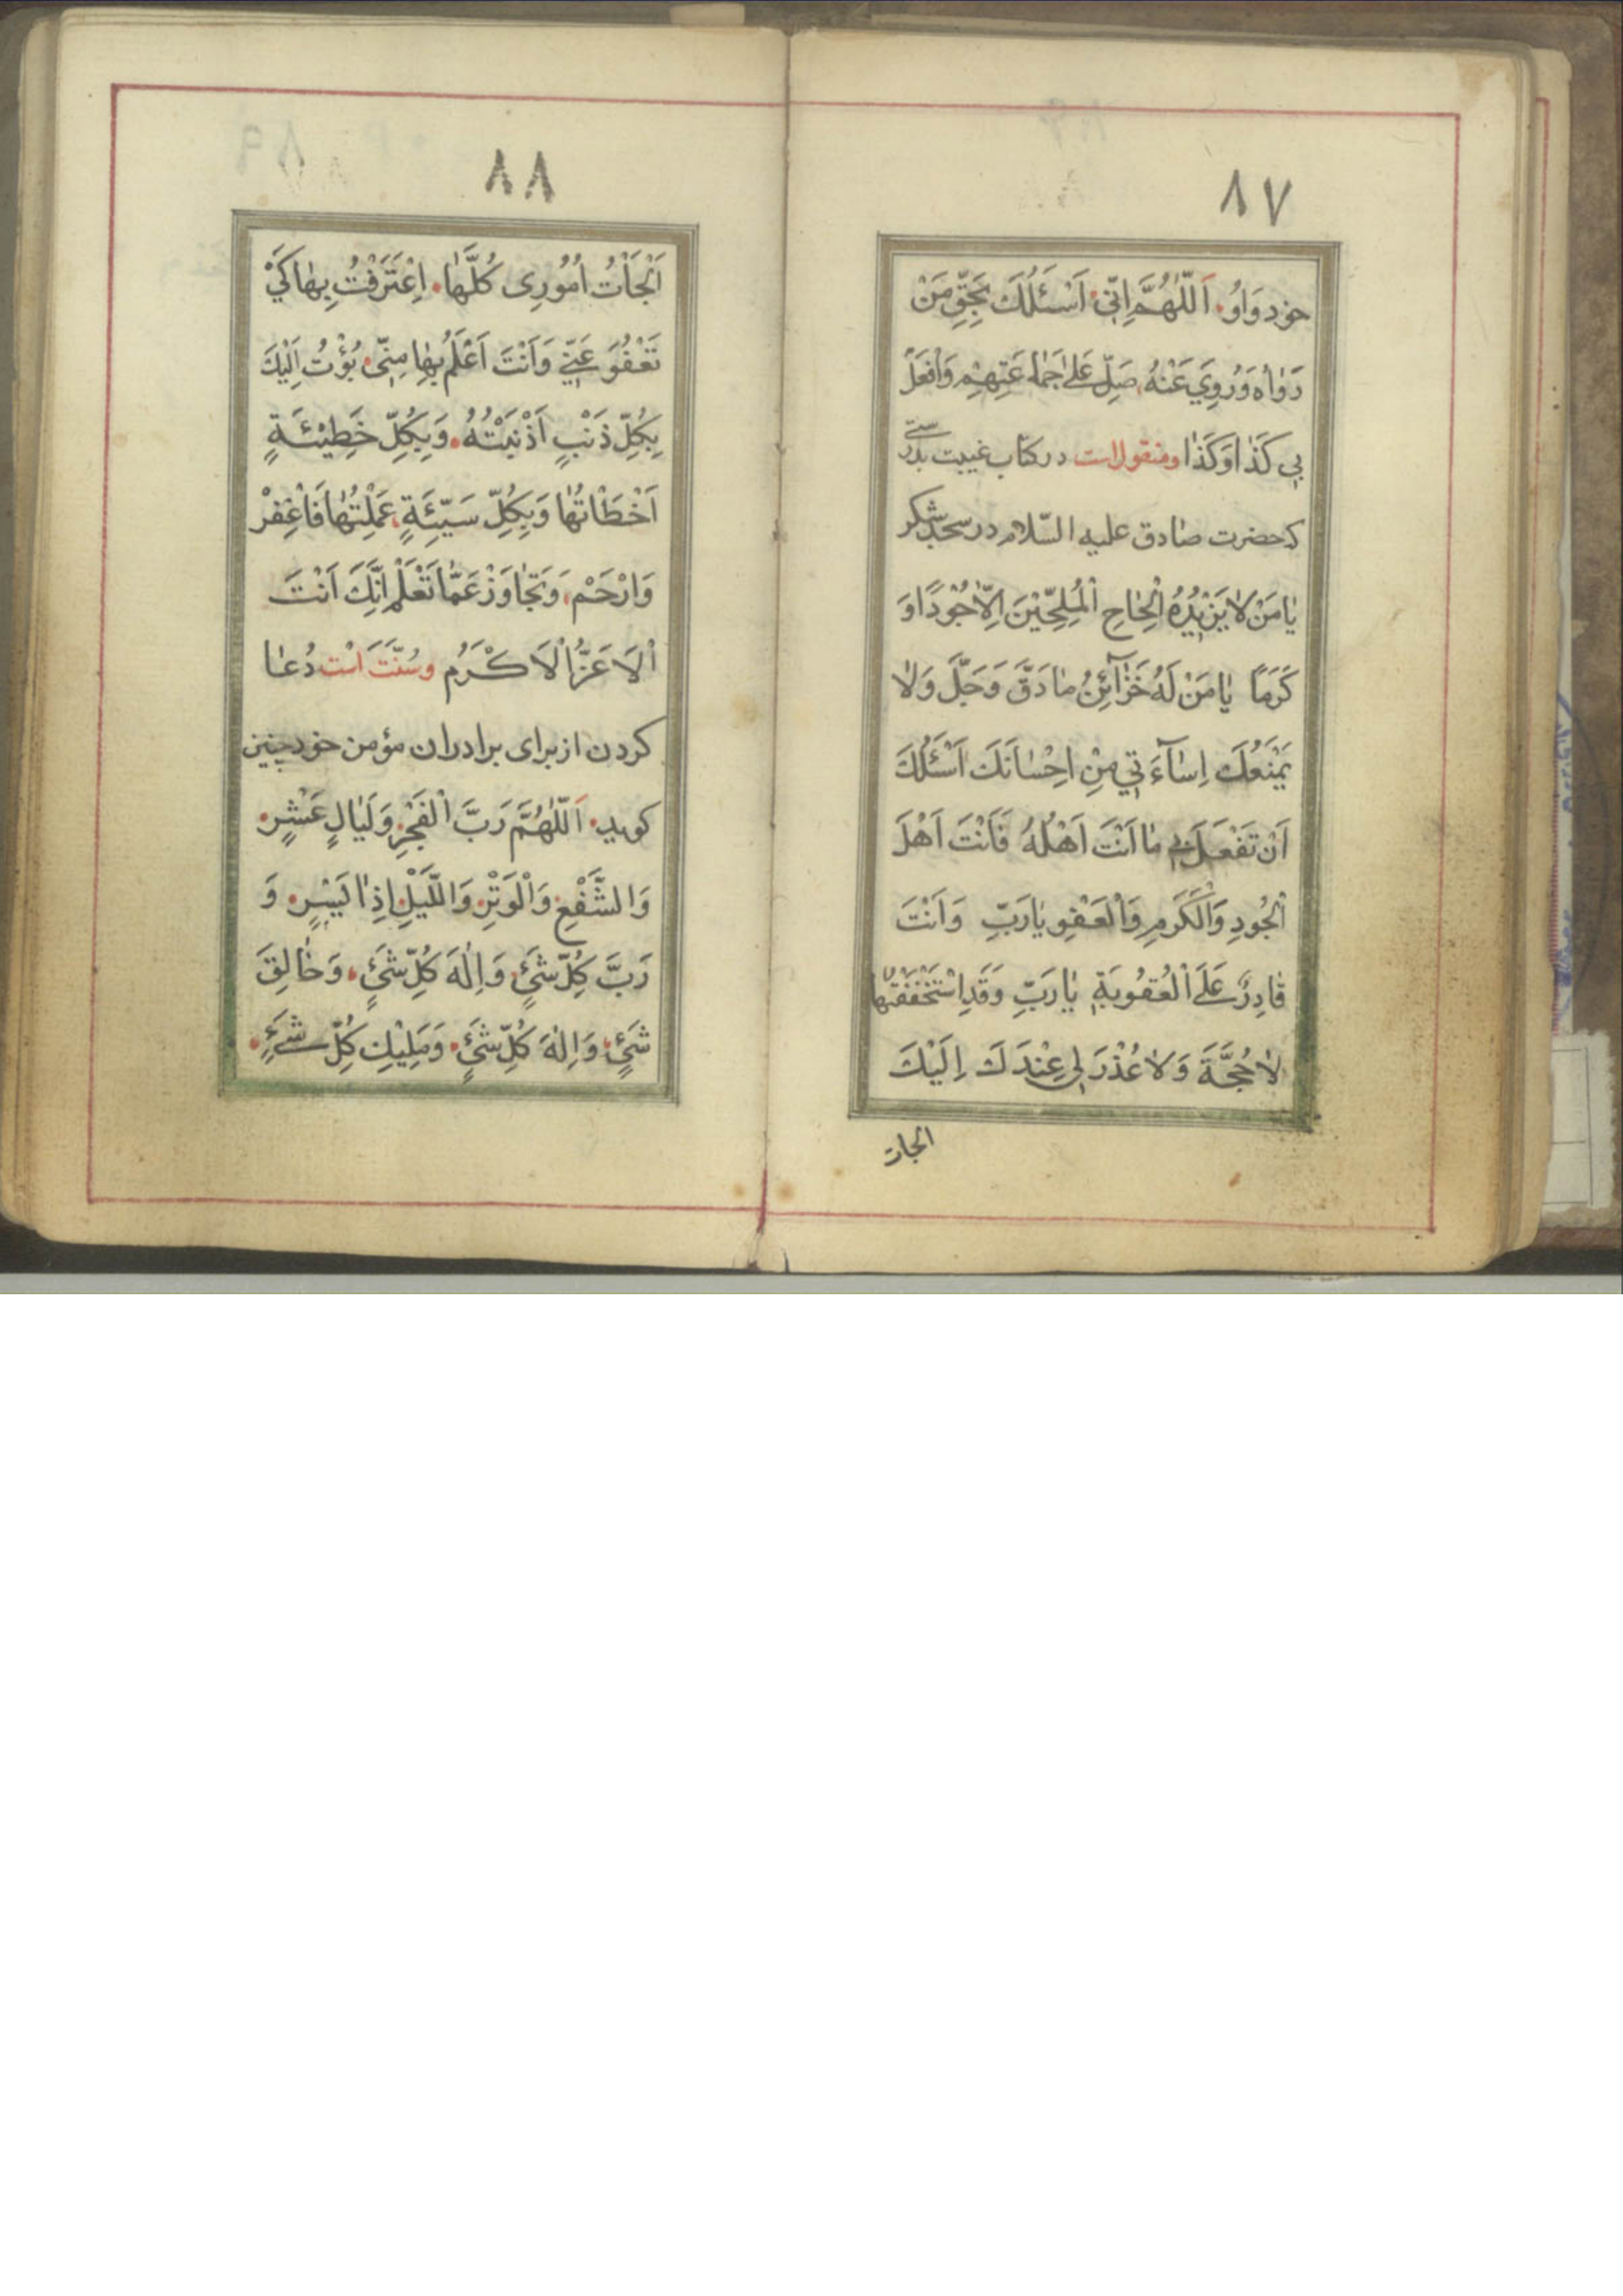 ٨٧
خود وَاوُ اَللّٰهُمَّ اِنّي اَسْئَلُكَ بِحَقِّ مَنْ
رَوٰاهُ وَرُوِيَ عَنْهُ صَلِّ عَلىٰ جَمٰاعَتِهِمْ وَافْعَلْ
بي كَذٰا وَكَذٰا ومنقولاست در كتاب غيبت بدرستى
كه حضرت صٰادق عليه السّلام در سجده شكر
يٰا مَنْ لاٰ يَزيٖدُهُ اِلْحٰاحِ الْمُلِحّيْنَ اِلاّٰ جُوْدًا وَ
كَرَمًا يٰا مَنْ لَهُ خَزٰآئِنُ مٰا دَقَّ وَجَلَّ وَلاٰ
يَمْنَعُكَ اِسٰآءَتي مِنْ اِحْسٰانَكَ اَسْئَلُكَ
اَنْ تَفْعَلَ بي مٰا اَنْتَ اَهْلُهُ فَاَنْتَ اَهْلَ
الْجُودِ وَالْكَرَمِ وَالْعَفْوِ يٰا رَبِّ وَاَنْتَ
قٰادِرٌ عَلَى الْعُقُوبَةِ يٰا رَبِّ وَقَدِ اسْتَحْقَقْتُهٰا
لاٰ حُجَّةَ وَلاٰ عُذْرَ لي عِنْدَكَ اِلَيْكَ
الجات
٨٨
اَلْجَاْتُ اُمُوُرِى كُلَّهٰا اِعْتَرَفْتُ بِهٰا كَيْ
تَعْفُوَ عَنّي وَاَنْتَ اَعْلَمُ بِهٰا مِنّى بُؤْتُ اِلَيْكَ
بِكُلِّ ذَنْبٍ اَذْنَبْتُهُ وَبِكُلِّ خَطِيْئَةٍ
اَخْطَاتُهٰا وَبِكُلِّ سَيّئَةٍ عَمِلْتُهٰا فَاغْفِرْ
وَارْحَمْ وَتَجٰاوَزْ عَمّٰا تَعْلَمْ اِنَّكَ اَنْتَ
اْلاَعَزُّ اْلاَكْرَمُ وسُنَّتَ اسْت دُعٰا
كردن از براى برادران مؤمن خود چنين
كويد اَللّٰهُمَّ رَبَّ الْفَجْرِ وَلَيٰالٍ عَشْرٍ
وَالشَّفْعِ وَالْوَتْرِ وَاللَّيْلِ اِذٰا يَسْرٍ وَ
رَبَّ كُلِّ شَيْءٍ وَاِلٰهَ كُلِّ شَيْءٍ وَخٰالِقَ
شَيْءٍ وَاِلٰهَ كُلِّ شَيْءٍ وَمَلِيْكِ كُلِّ شَيْءٍ